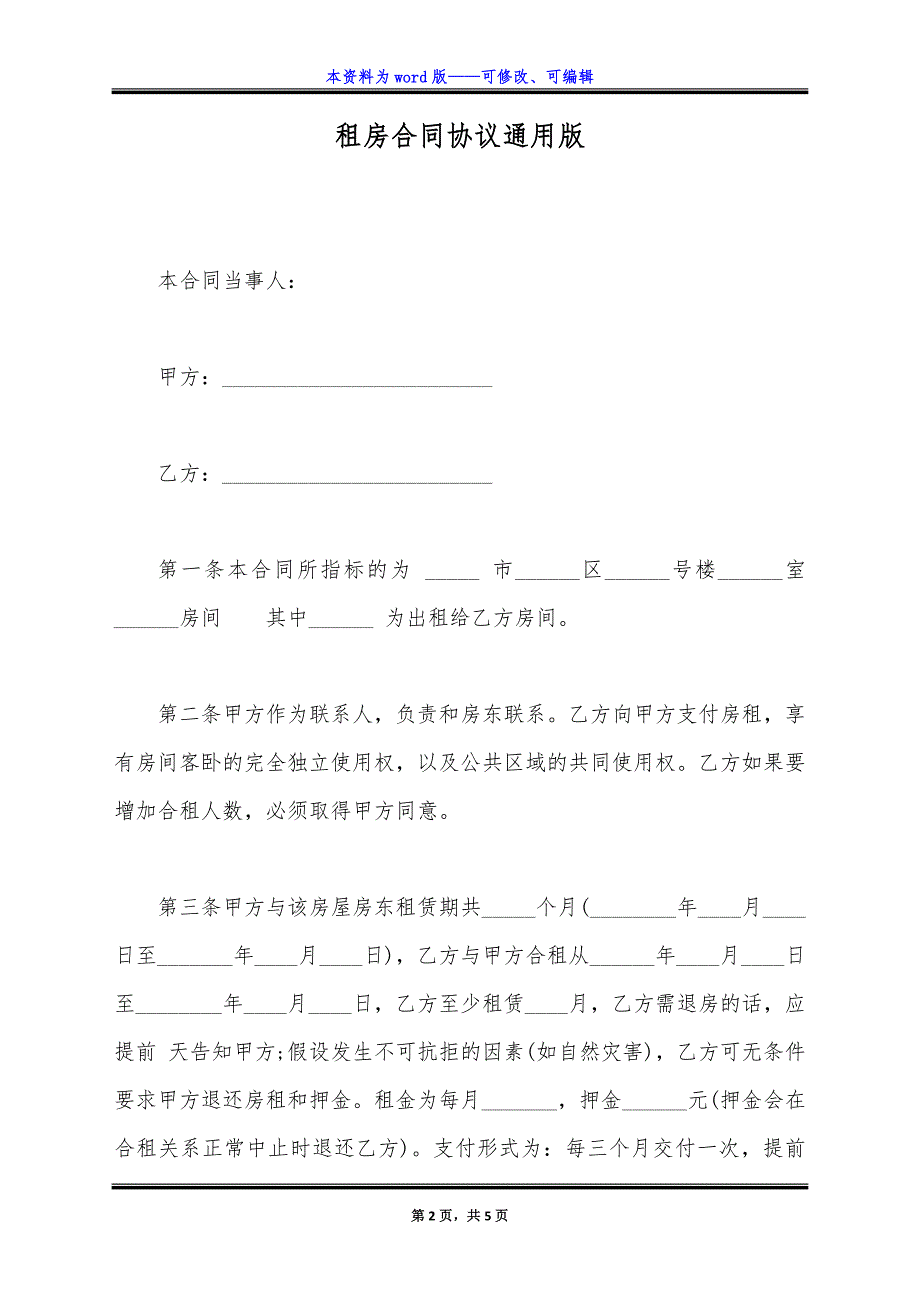 本资料为 word 版——可修改、可编辑
租房合同协议通用版
本合同当事人：
甲方：_________________________
乙方：_________________________
第一条本合同所指标的为 _____ 市______区______号楼______室
______房间　　其中______ 为出租给乙方房间。
第二条甲方作为联系人，负责和房东联系。乙方向甲方支付房租，享
有房间客卧的完全独立使用权，以及公共区域的共同使用权。乙方如果要
增加合租人数，必须取得甲方同意。
第三条甲方与该房屋房东租赁期共_____个月(________年____月____
日至_______年____月____日)，乙方与甲方合租从______年____月____日
至________年____月____日，乙方至少租赁____月，乙方需退房的话，应
提前 天告知甲方;假设发生不可抗拒的因素(如自然灾害)，乙方可无条件
要求甲方退还房租和押金。租金为每月_______，押金______元(押金会在
合租关系正常中止时退还乙方)。支付形式为：每三个月交付一次，提前
第 2 页，共 5 页